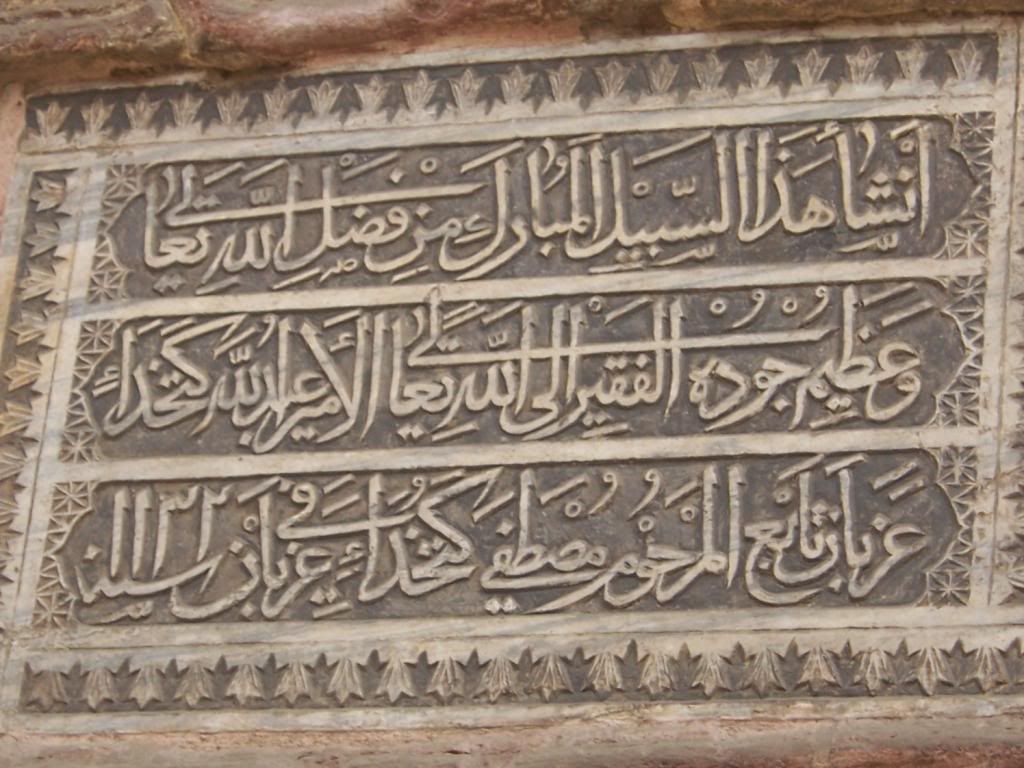 أنشأ هذا السبيل المبارك من فضل الله تعالى
وعظيم جوده الفقير إلى الله تعالى الأمير عبد الله كتخداء
عزبان تابع المرحوم مصطفى كتخداء عزبان في سنة ١١٣٢